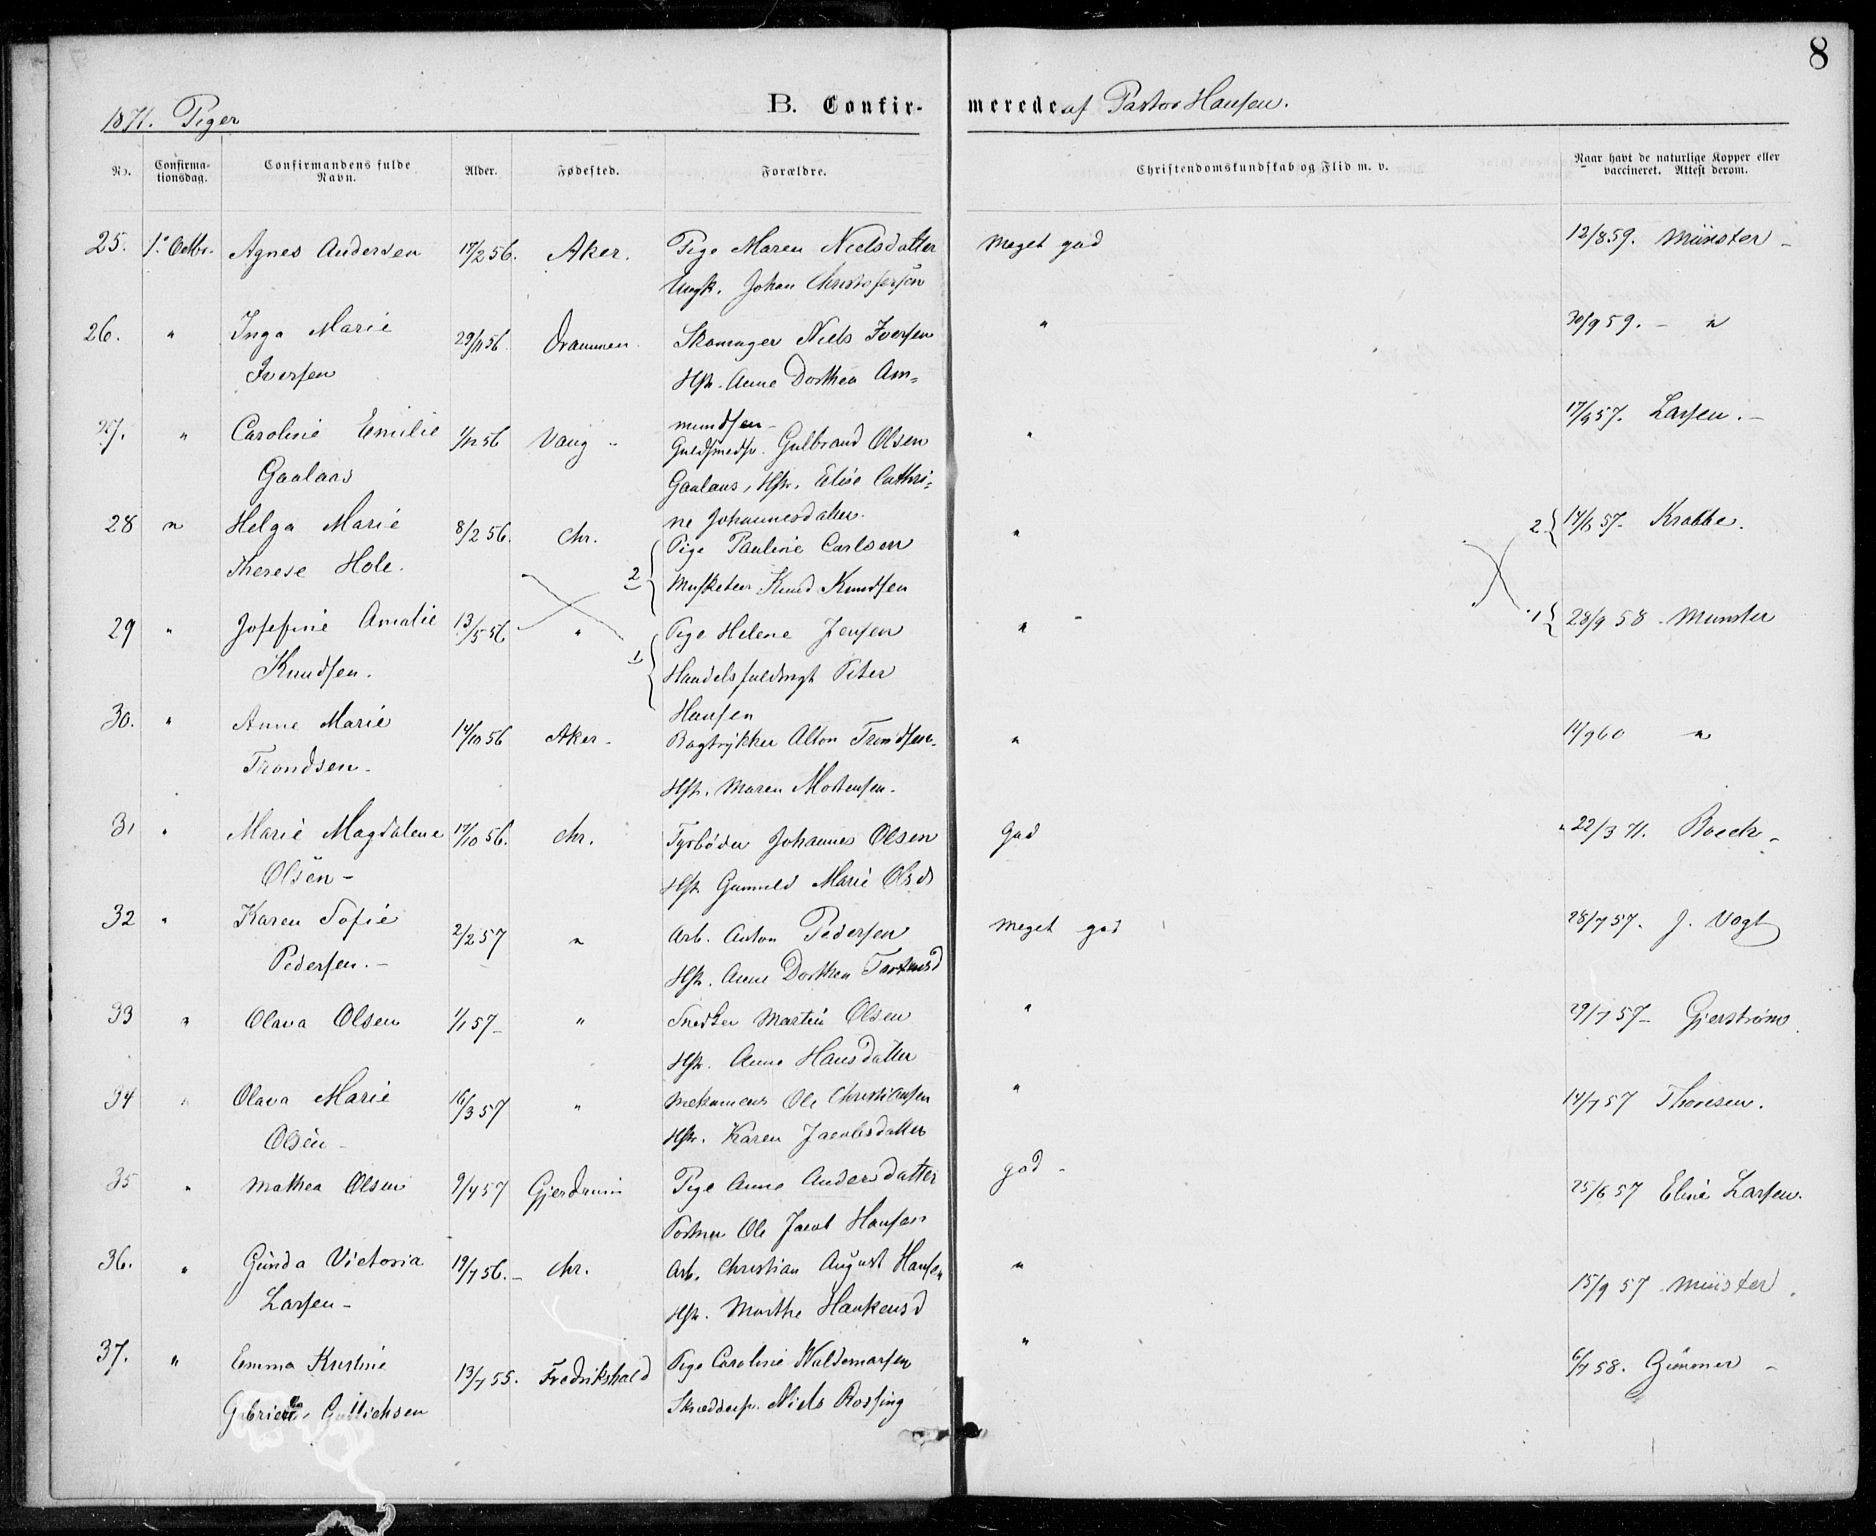 8
1871. Piger B. Confir- merede af Pastor Hansen.
No. Confirma-tionsdag. Confirmandens fulde Navn. Alder. Fødested. Forældre. Christendomskundskab og Flid m. v. Naar havt de naturlige Kopper eller vaccineret. Attest derom.
25. 1. Octbr. Agnes Andersen 17/2 56. Aker. Pige Maren Nielsdatter Meget god 12/8 59. Münster -
Ungk. Johan Christofersen
26. " Inga Marie 29/11 56. Drammen. Skomager Niels Iversen " 30/9 59. - "
Iversen Hst. Anne Dorthea Am-
mundsen -
27. " Caroline Emilie 1/12 56 Vang - Guldsmedsv. Gulbrand Olsen " 17/9 57. Larsen. -
Gaalaas Gaalaas, Hst. Elise Cathri-
ne Johannesdatter.
28 " Helga Marie 8/2 56. Chr. 2 { Pige Pauline Carlsen " 2 { 14/8 57 - Krabbe.
Therese Hole. Musketeer Knud Knudsen
29 " Josefine Amalie 13/5 56 " 1 { Pige Helene Jensen " 1 { 28/9 58 - Munster
Knudsen. Handelsfuldmgt Peter
Hansen
30. " Anne Marie 14/10 56 Aker - Bogtrykker Alton Trondsen. " 14/9 60 "
Trondsen - Hst. Maren Mortensen.
31 " Marie Magdalene 17/10 56. Chr. Fyrbøder Johannes Olsen God 22/3 71. Boeck -
Olsen - Hst. Gunnild Marie Olsd
32 " Karen Sofie 2/2 57 " Arb. Anton Pedersen Meget god 28/7 57. J. Vogt
Pedersen. - Hst. Anne Dorthea
33 " Olava Olsen 1/1 57 - " Snedker Martin Olsen " 29/7 57 - Gjerstrøm.
Hst. Anne Hansdatter
34 " Olava Marie 16/3 57 " Mekanicus Ole Christiansen " 14/7 57 Thoresen.
Olsen - Hst. Karen Jacobsdatter
35 " Mathea Olsen 9/4 57 Gjerdrum Pige Anne Andersdatter god - 25/6 57 Eline Larsen.
Portner Ole Jacob Hansen
36. " Gunda Victoria 19/7 56. - Chr. Arb. Christian August Hansen " 15/9 57 Münster.
Larsen - Hst. Marthe Haakensd
37. " Emma Kristine 13/7 55. Fredrikshald Pige Caroline Waldemarsen " 6/7 58. Gimmer -
Skræddersv. Niels Rossing